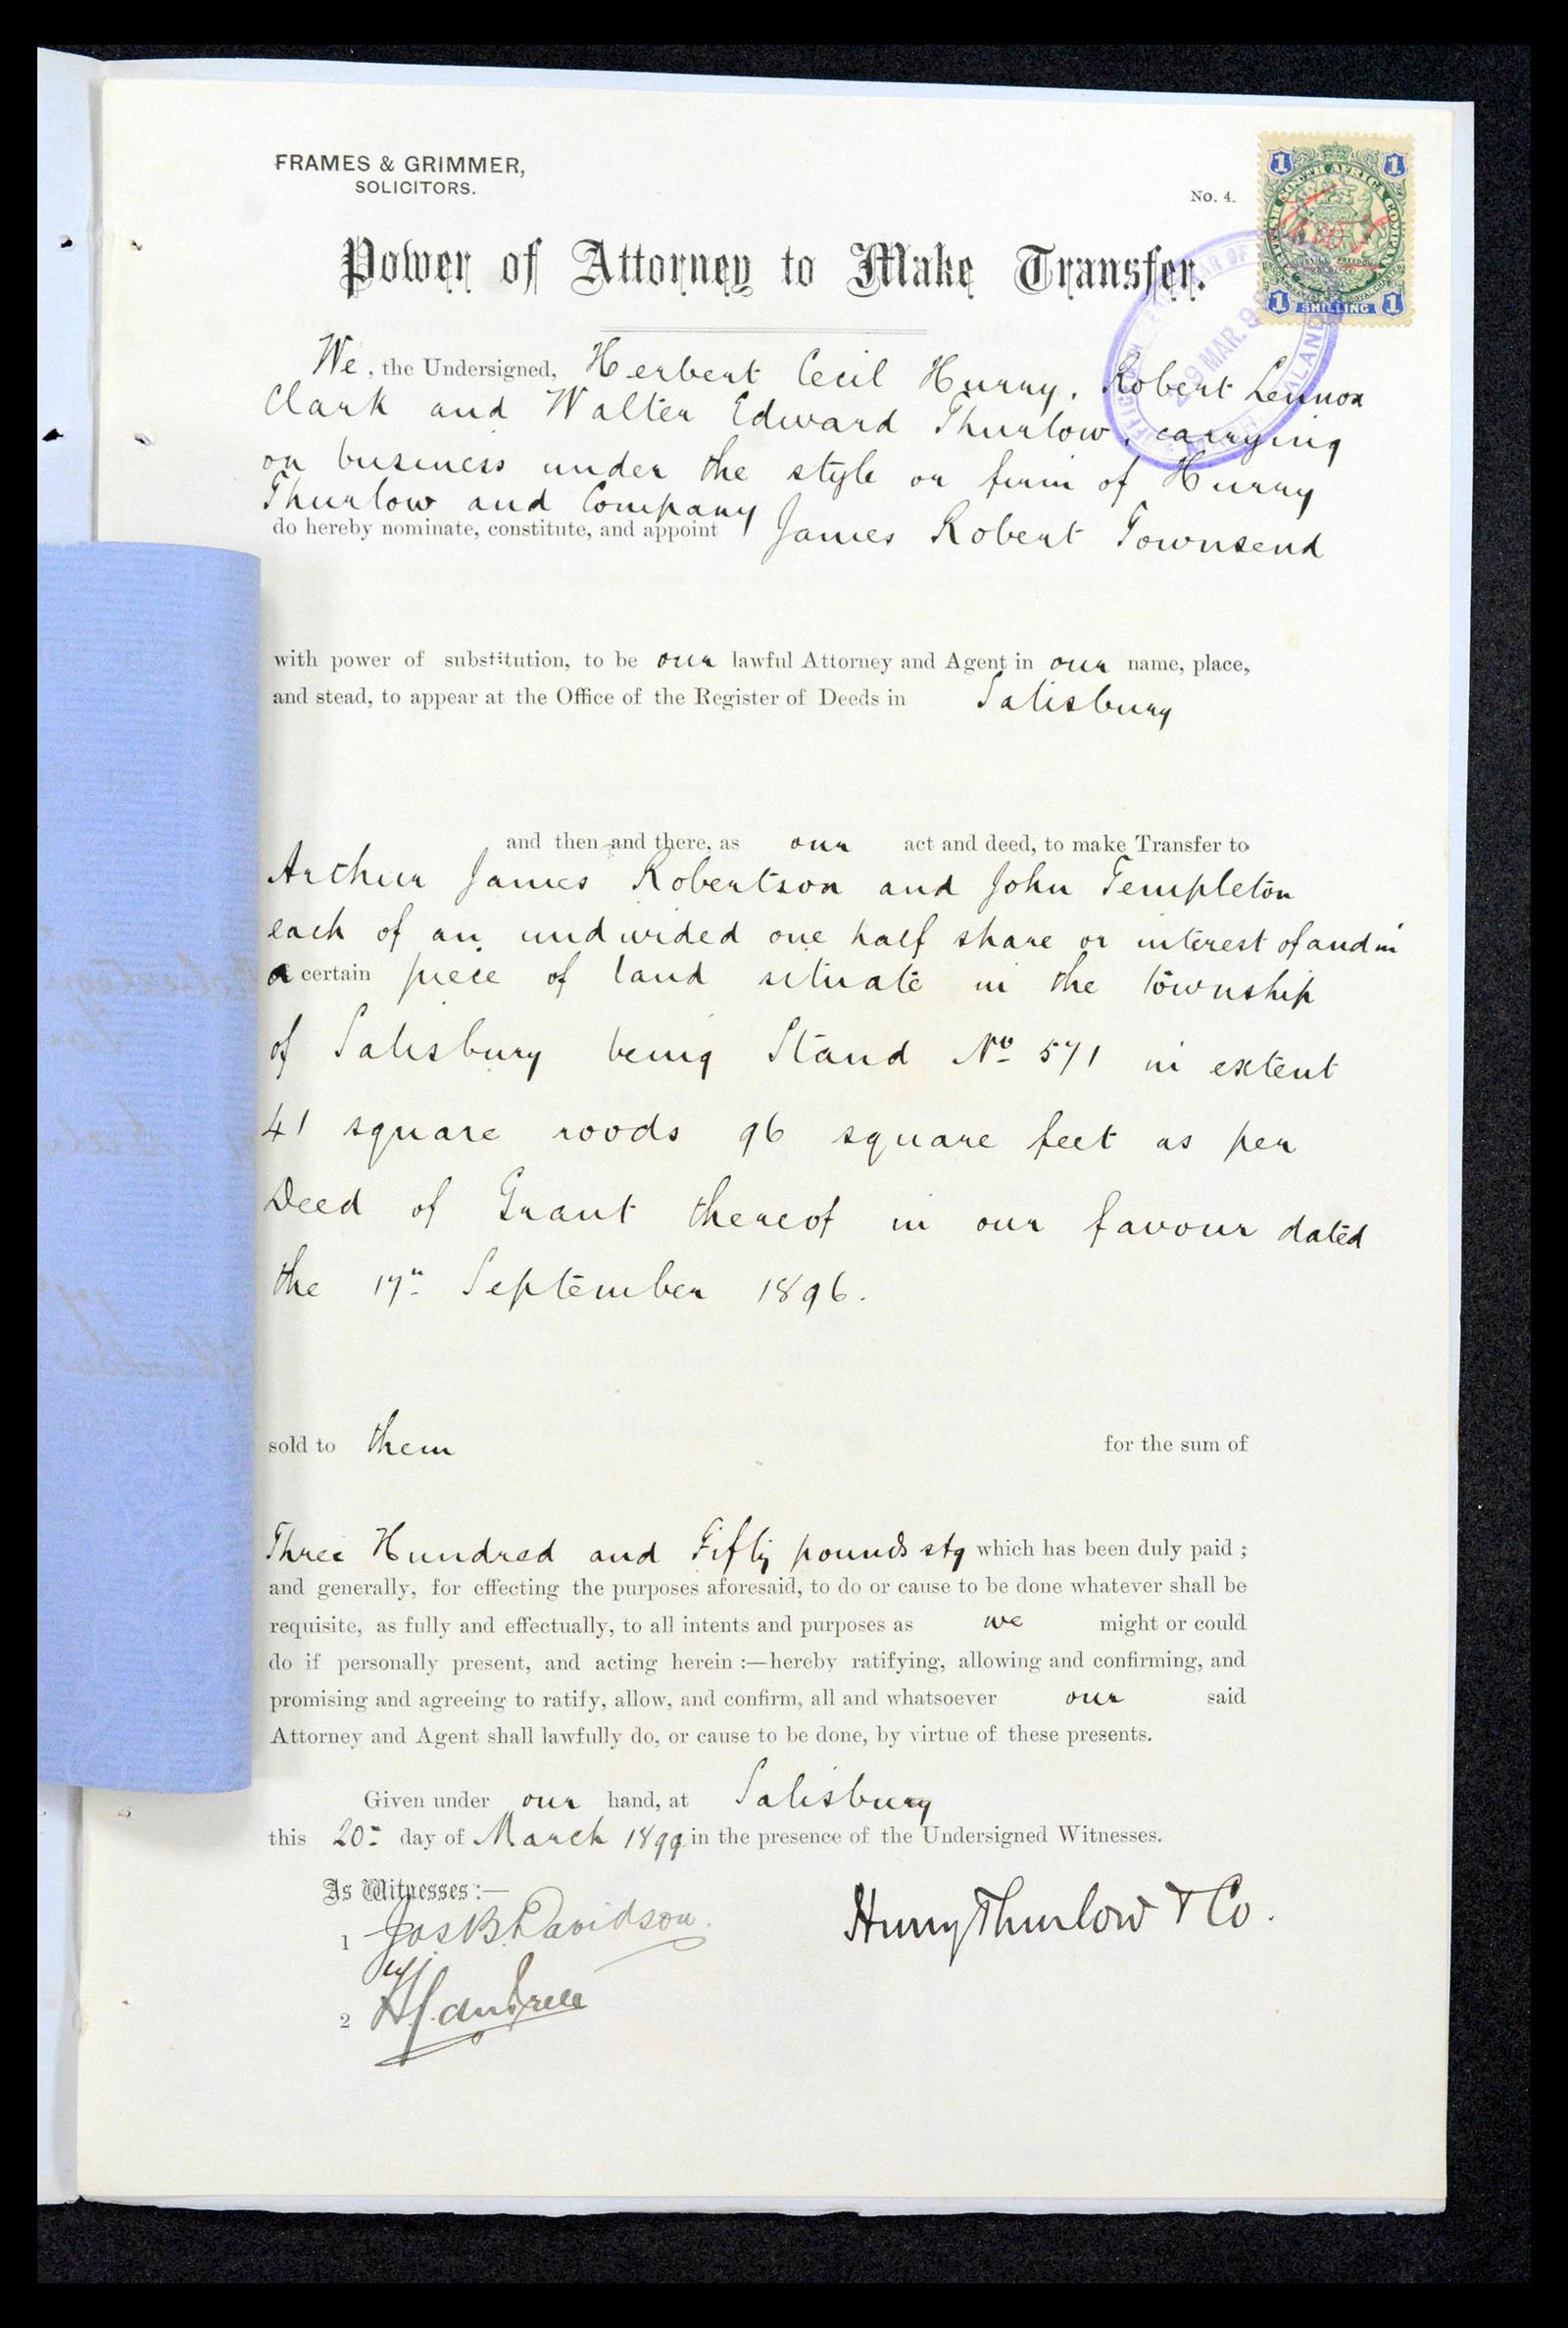 FRAMES & GRIMMER,
SOLICITORS.
No. 4.
1 1
BRITISH SOUTH AFRICA COMPANY
1 SHILLING 1
Power of Attorney to Make Transfer.
29 MAR. 9
We, the Undersigned, Herbert Cecil Hurry, Robert Lennox
Clark and Walter Edward Thurlow, carrying
on business under the style or firm of Hurry
Thurlow and Company
do hereby nominate, constitute, and appoint James Robert Townsend
with power of substitution, to be our lawful Attorney and Agent in our name, place,
and stead, to appear at the Office of the Register of Deeds in Salisbury
and then and there, as our act and deed, to make Transfer to
Arthur James Robertson and John Templeton
each of an undivided one half share or interest of and in
a certain piece of land situate in the township
of Salisbury being Stand No 571 in extent
41 square roods 96 square feet as per
Deed of Grant thereof in our favour dated
the 17th September 1896.
sold to them for the sum of
Three Hundred and Fifty pounds stg which has been duly paid ;
and generally, for effecting the purposes aforesaid, to do or cause to be done whatever shall be
requisite, as fully and effectually, to all intents and purposes as we might or could
do if personally present, and acting herein :—hereby ratifying, allowing and confirming, and
promising and agreeing to ratify, allow, and confirm, all and whatsoever our said
Attorney and Agent shall lawfully do, or cause to be done, by virtue of these presents.
Given under our hand, at Salisbury
this 20th day of March 1899 in the presence of the Undersigned Witnesses.
As Witnesses :—
1 Jas B. Davidson.
Hurry Thurlow & Co.
2